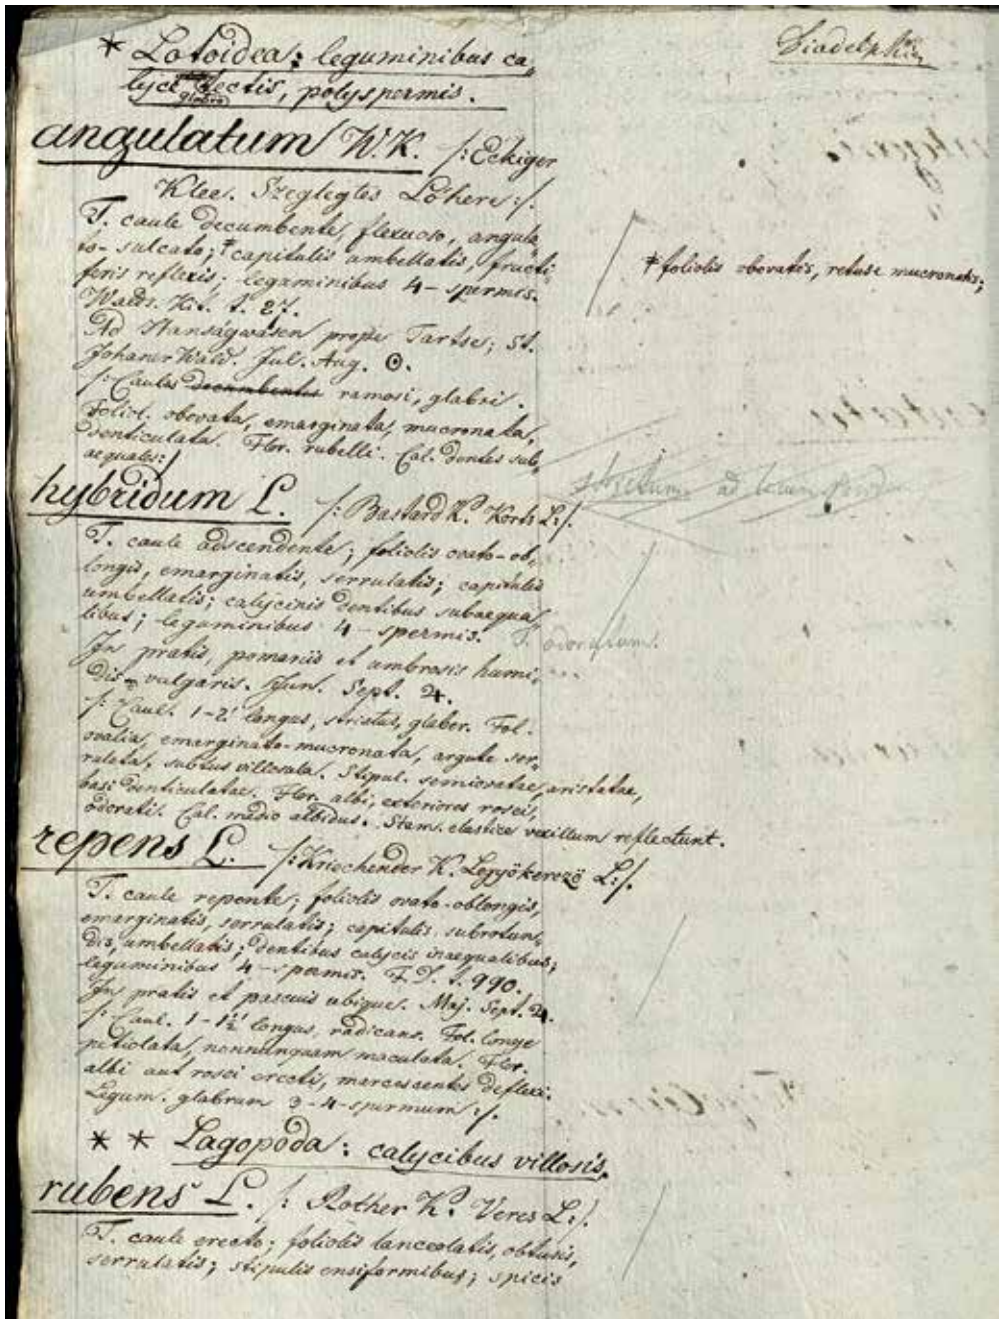 Diadelphia
* Lotoidea: leguminibus ca,
lyce tectis, polyspermis.
glabro
angulatum W.K. /: Eckiger
Klee. Szeglegtes Lohere :/.
T. caule decumbente, flexuoso, angula,
to-sulcato; * capitulis umbellatis, fructi,
feris reflexis; leguminibus 4-spermis.
* foliolis obovatis, retuse mucronatis;
Walds. Kit. t. 27.
Ad Hanságwasen prope Tartse; St.
Johann Wald. Jul. Aug. ⊙.
/: Caules decumbentes ramosi, glabri.
Foliol. obovata, emarginata, mucronata,
denticulata. Flor. rubelli. Cal. dentes sub,
aequales:/
hybridum L. /: Bastard K. Korts L:/.
T. caule adscendente; foliolis ovato-ob,
longis, emarginatis, serrulatis; capitulis
umbellatis; calycinis dentibus subaequa,
libus; leguminibus 4-spermis.
T. odoratum.
In pratis, pomariis et ambrosis humi,
dis vulgaris. Jun. Sept. ♃.
/: Caul. 1-2' longus, striatus, glaber. Fol.
ovalia, emarginato-mucronata, argute ser,
rulata, subtus villosula. Stipul. semiovatae, aristatae,
basi denticulatae. Flor. albi, exteriores rosei,
odorati. Cal. medio albidus. Stam. elastice vexillum reflectunt.
repens L. /: Kriechender K. Legyökerező L:/.
T. caule repente; foliolis ovato-oblongis,
emarginatis, serrulatis; capitulis subrotun,
dis, umbellatis; dentibus calycis inaequalibus;
leguminibus 4-spermis. F.D. t. 990.
In pratis et pascuis ubique. Maj. Sept. ♃.
/: Caul. 1-1½' longus, radicans. Fol. longe
petiolata, nonnunquam maculata. Flor.
albi aut rosei erecti, marcescentes deflexi.
Legum. glabrum 3-4-spermum :/.
* * Lagopoda: calycibus villosis.
rubens L. /: Rother K. Veres L:/.
T. caule erecto; foliolis lanceolatis, obtusis,
serrulatis; stipulis ensiformibus; spicis